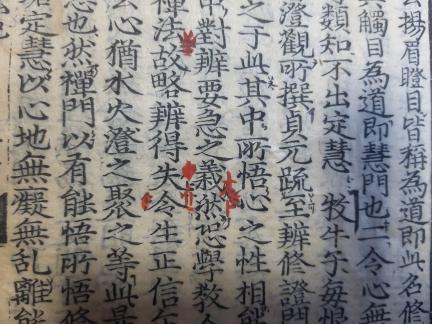 揚眉瞪目皆稱為道即此名修
觸目為道即慧門也二令心無
類知不出定慧牧牛子每恨
澄觀所撰貞元疏至辨修證門
之于此其中所悟心之性相能
對辨要急之義然恐學教人
種法故略辨得失令生正信
法心猶水火澄之聚之等此是
也然禪門以有能悟所悟修
定慧以心地無癡無乱離能